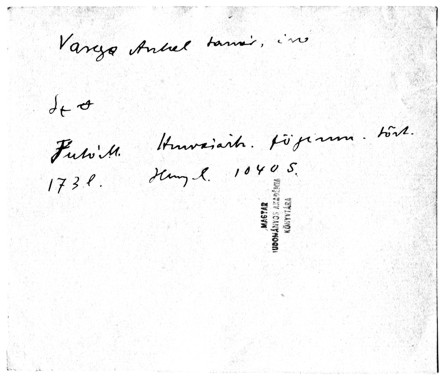 Varga Antal tanár, iró
Futó M. Hunvásárh. főgimn. tört.
173 l. 1040 S.
MAGYAR
TUDOMÁNYOS AKADÉMIA
KÖNYVTÁRA